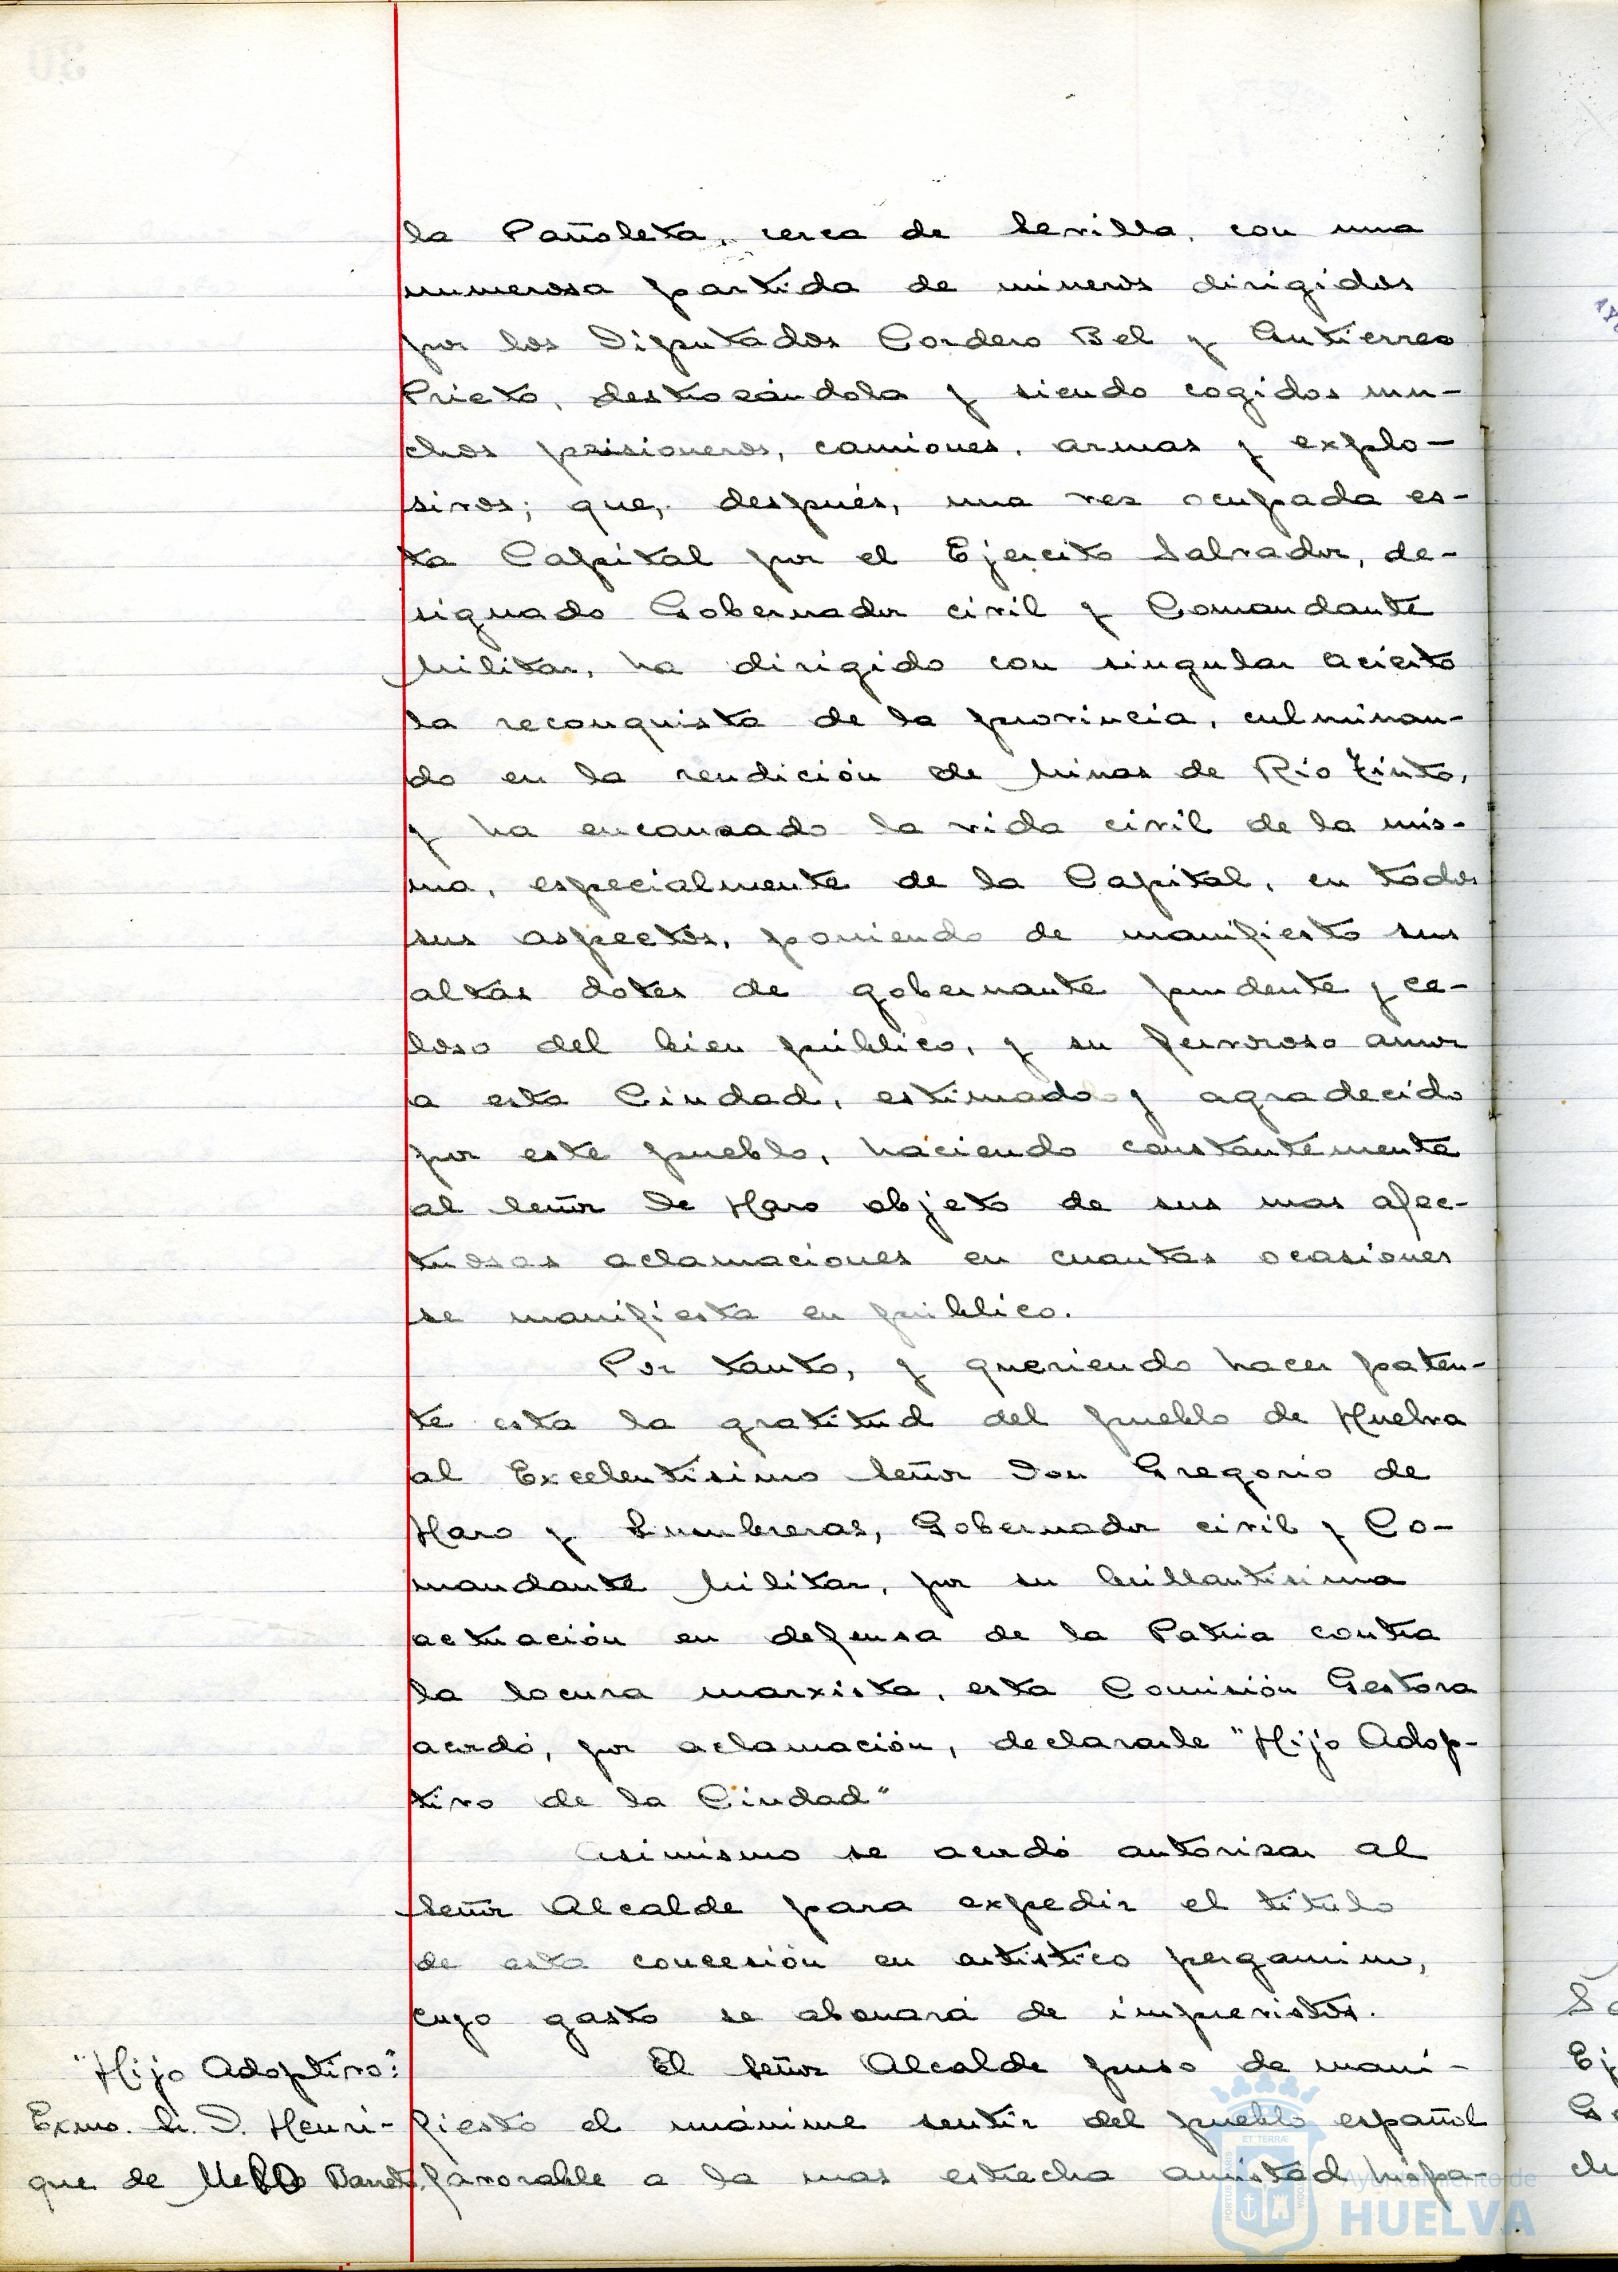 la Pañoleta, cerca de Sevilla, con una
numerosa partida de mineros dirigidos
por los Diputados Cordero Bel y Gutierrez
Prieto, destrozándola y siendo cogidos mu-
chos prisioneros, camiones, armas y explo-
sivos; que, después, una vez ocupada es-
ta Capital por el Ejercito Salvador, de-
signado Gobernador civil y Comandante
Militar, ha dirigido con singular acierto
la reconquista de la provincia, culminan-
do en la rendición de Minas de Rio Tinto,
y ha encauzado la vida civil de la mis-
ma, especialmente de la Capital, en todos
sus aspectos, poniendo de manifiesto sus
altas dotes de gobernante prudente y ce-
loso del bien público, y su fervoroso amor
a esta Ciudad, estimado y agradecido
por este pueblo, haciendo constantemente
al Señor De Haro objeto de sus mas afec-
tuosas aclamaciones en cuantas ocasiones
se manifiesta en público.
Por tanto, y queriendo hacer paten-
te esta la gratitud del pueblo de Huelva
al Excelentísimo Señor Don Gregorio de
Haro y Lumbreras, Gobernador civil y Co-
mandante Militar, por su brillantísima
actuación en defensa de la Patria contra
la locura marxista, esta Comisión Gestora
acordó, por aclamación, declararle "Hijo Adop-
tivo de la Ciudad"
Asimismo se acordó autorizar al
Señor Alcalde para expedir el título
de esta concesión en artístico pergamino,
cuyo gasto se abonará de imprevistos.
"Hijo Adoptivo":
Exmo. Sr. D. Henri-
que de Mello Barreto.
El Señor Alcalde puso de mani-
fiesto el unánime sentir del pueblo español
favorable a la mas estrecha amistad hispa-
Ayuntamiento de
HUELVA